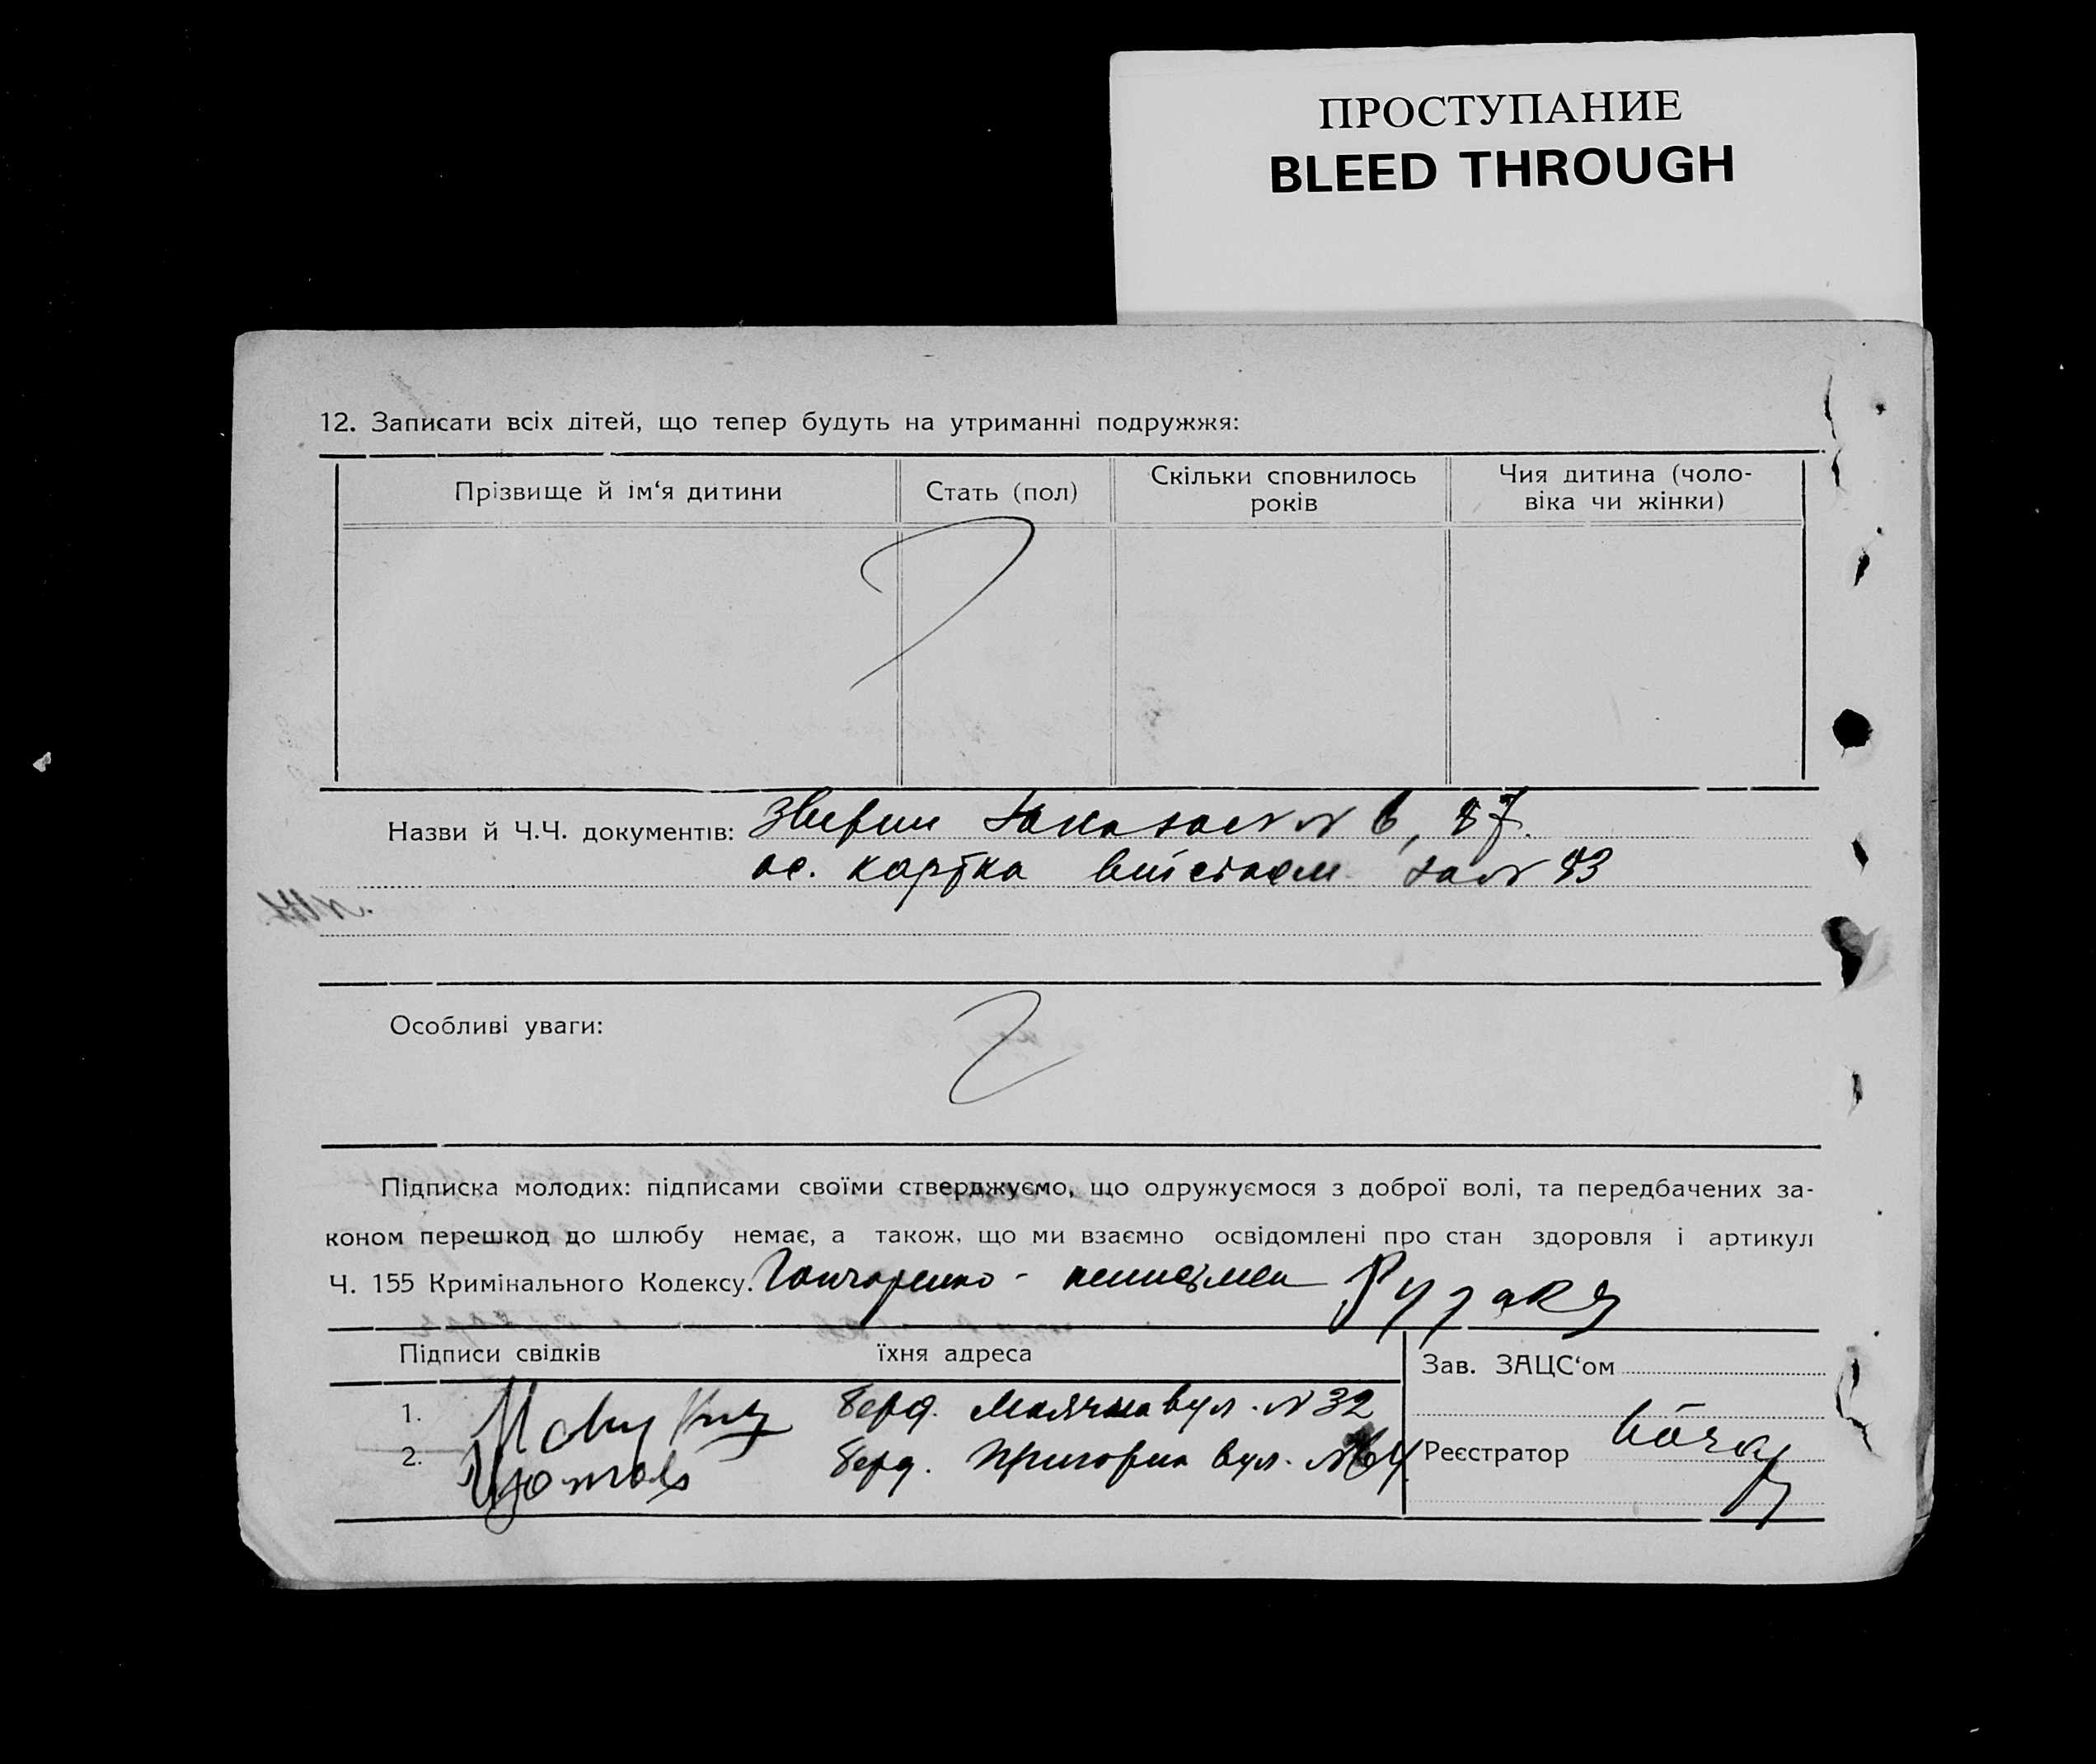 ПРОСТУПАНИЕ
BLEED THROUGH
12. Записати всіх дітей, що тепер будуть на утриманні подружжя:
Прізвище й ім'я дитини
Стать (пол)
Скільки сповнилось років
Чия дитина (чоло-
віка чи жінки)
Назви й Ч.Ч. документів: 6, 87.
ос. картка за № 93
Особливі уваги:
Підписка молодих: підписами своїми стверджуємо, що одружуємося з доброї волі, та передбачених за-
коном перешкод до шлюбу немає, а також, що ми взаємно освідомлені про стан здоровля і артикул
Ч. 155 Кримінального Кодексу. Гончаренко - неписьмен
Підписи свідків їхня адреса
Зав. ЗАЦС'ом
1. Берд. вул. № 32
2. Берд. вул. №
Реєстратор